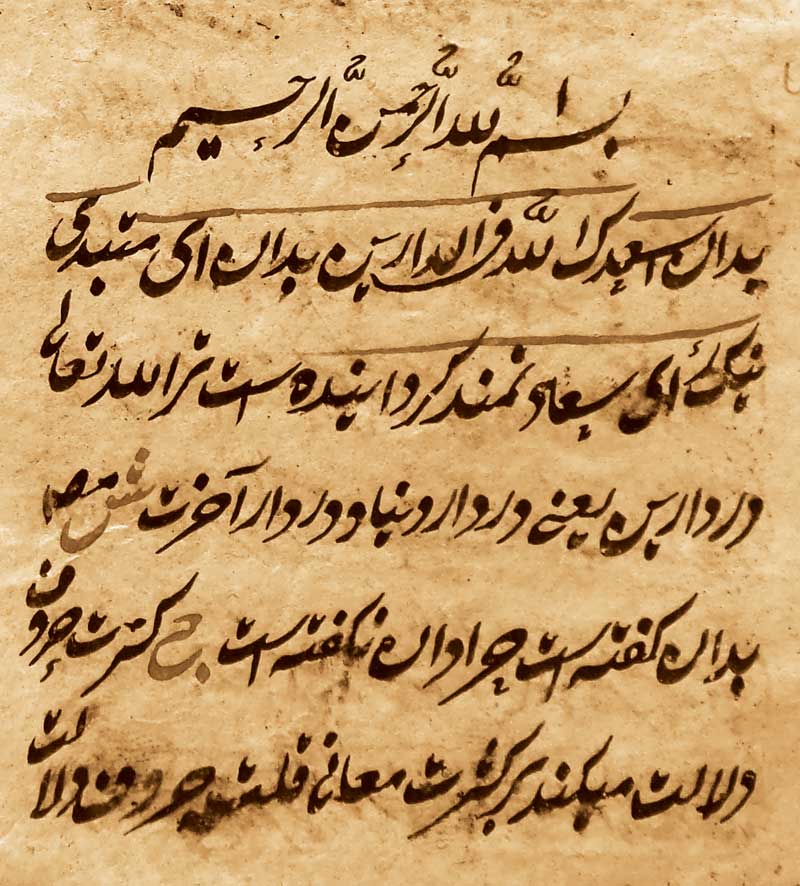 بسم الله الرحمن الرحیم
بدان اسعدک الله فی الدارین بدان ای مبتدی
نیک ای سعادتمند گرداینده است ترا الله تعالی
در دارین یعنی در دار دنیا و در دار آخرت ش مص
بدان گفته است چرا دان نگفته است ج کثرت حروف
دلالت میکند بر کثرت معانی قلت حروف دلالت